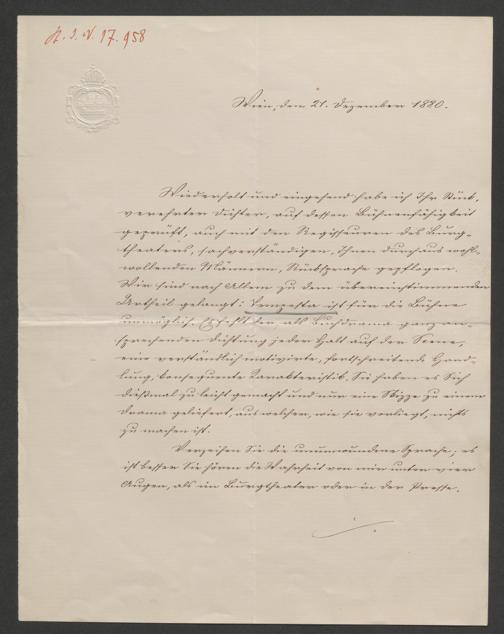 H. I. N. 17.958
Wien, den 21. Dezember 1880.
Wiederholt und eingehend habe ich Ihr Stück,
verehrter Dichter, auf dessen Bühnenfähigkeit
geprüft, auch mit den Regisseuren des Burg-
theaters, sachverständigen, Ihnen durchaus wohl-
wollenden Männern, Rücksprache gepflogen.
Wir sind nach Allem zu dem übereinstimmenden
Urtheil gelangt: Tempesta ist für die Bühne
unmöglich. Es fehlt der als Buchdrama ganz an-
sprechenden Dichtung jeder Halt auf der Scene,
eine verständlich motivirte, fortschreitende Hand-
lung, konsequente Karakteristik. Sie haben es Sich
dießmal zu leicht gemacht und nur eine Skizze zu einem
Drama geliefert, aus welchem, wie sie vorliegt, nichts
zu machen ist.
Verzeihen Sie die unumwundene Sprache; es
ist besser Sie hören die Wahrheit von mir unter vier
Augen, als im Burgtheater oder in der Presse.